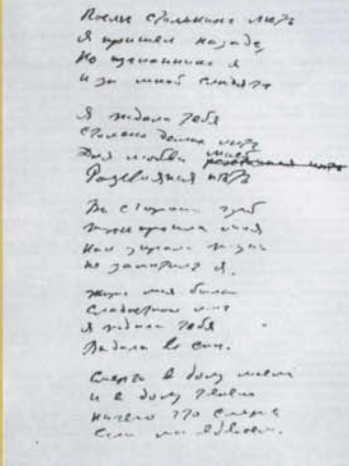 После стольких лет
Я пришел назад,
Но изгнанник я
И за мной следят.
Я ждала тебя
Столько долгих лет
Для любви моей
Расстоянья нет.
В стороне чужой
Жизнь прошла моя
Как украли жизнь
Не заметил я.
Жизнь моя была
Сладостною мне
Я ждала тебя
Видела во сне.
Смерть в дому моем
И в дому твоем
Ничего что смерть
Если мы вдвоем.